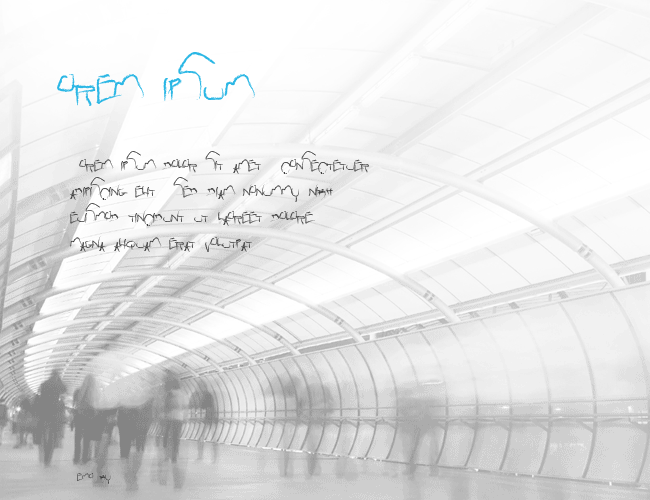 OREM IPSUM
OREM IPSUM DOLOR SIT AMET CONSECTETUER
ADIPISCING ELIT SEM DIAM NONUMMY NIBH
EUISMOD TINCIDUNT UT LAOREET DOLORE
MAGNA ALIQUAM ERAT VOLUTPAT